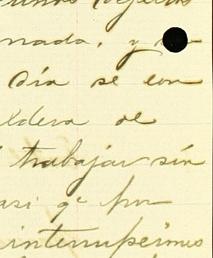 nada, y
dia se con
ldera de
trabajar sin
asi qe por
interrupciones